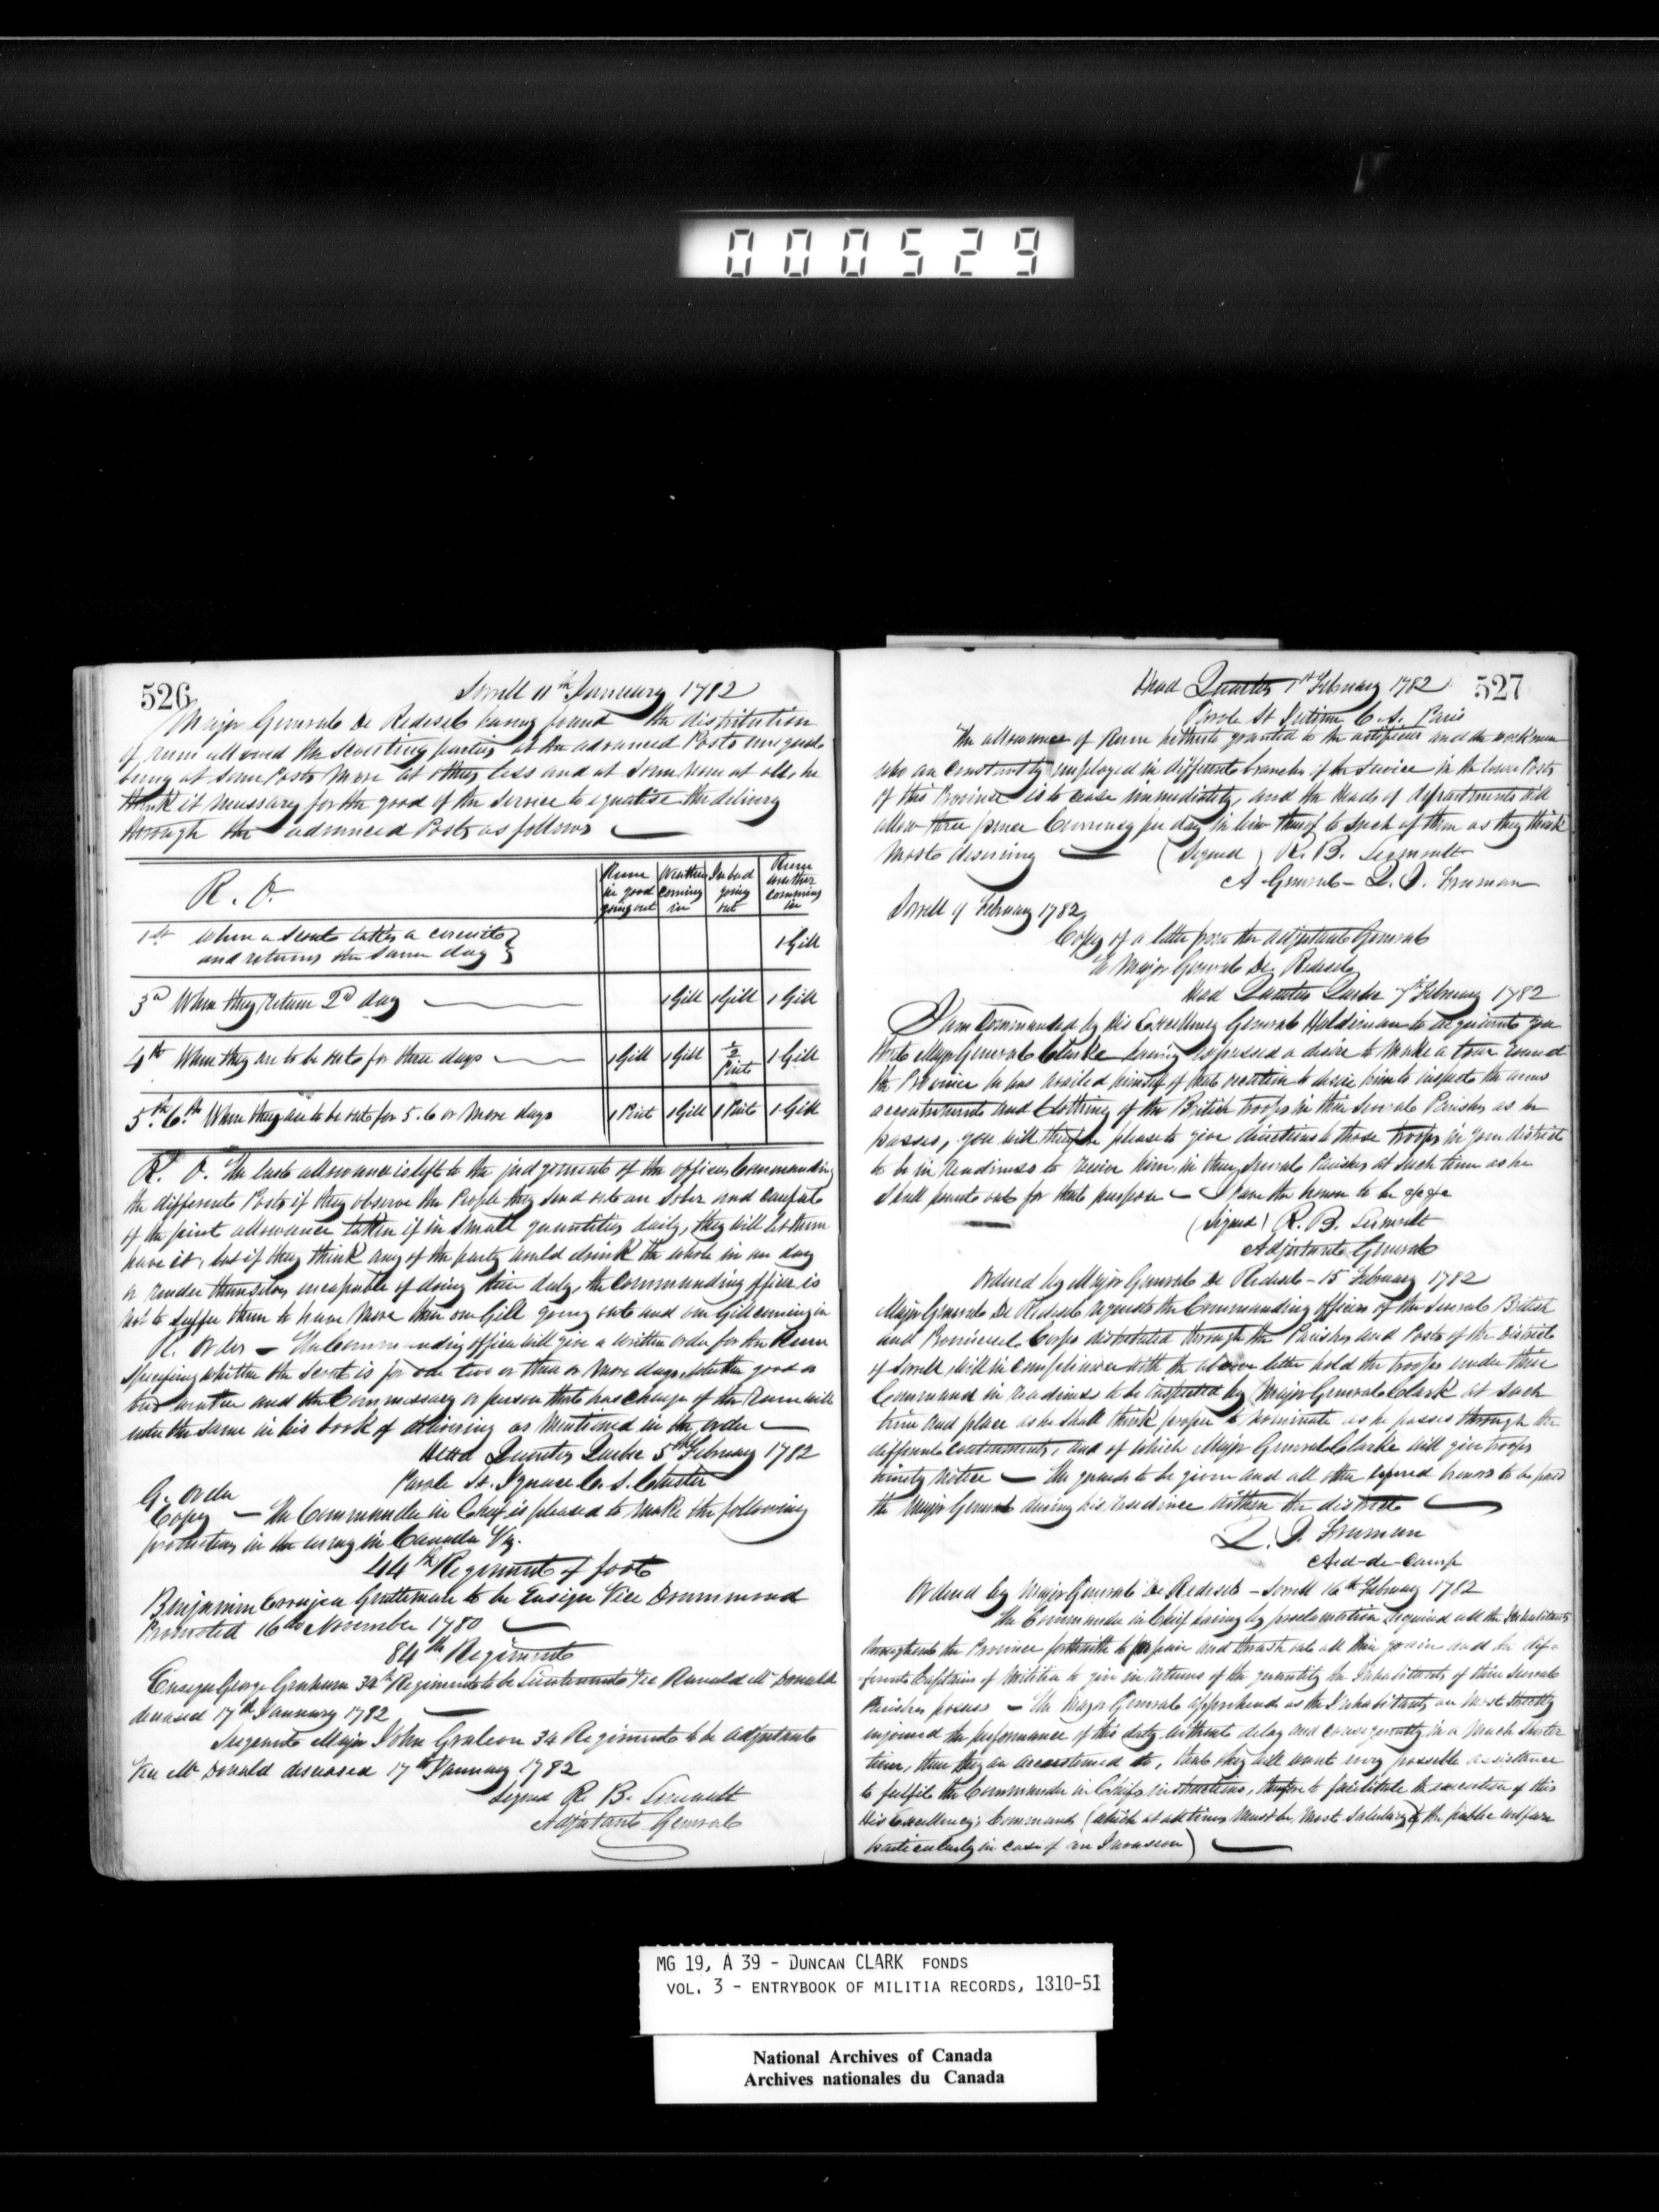 000529
526
Sorrell 11th January 1782
Major General De Redesel having found the distribution
of rum allowed the scouting parties at the advanced Posts unequal
being at some Posts more at others less and at some none at all, he
think it necessary for the good of the service to equalise the delivery
through the advanced Posts as follows
R. O.
Rum in good going out
Weather coming in
In bad going out
Rum weather comming in
1st When a scout takes a circuit and returns the same day
1 Gill
3d When they return 2d day
1 Gill 1 Gill 1 Gill
4th When they are to be out for three days
1 Gill 1 Gill 1/2 Pint 1 Gill
5th 6th When they are to be out for 5. 6 or more days
1 Pint 1 Gill 1 Pint 1 Gill
R. O. The last allowance is left to the judgement of the officers Commanding
the different Posts if they observe the People they send out are sober and careful
of the pint allowance taken if in small quantities daily, they will let them
have it, but if they think any of the party would drink the whole in one day
or render themselves incapable of doing their duty, the commanding officer is
not to suffer them to have more than one Gill going out and one Gill coming in
R. Order – The Commanding officer will give a written order for the Rum
specifying whether the scout is for one two or three or more days, whether good or
bad weather and the Commessary or person that has charge of the Rum will
enter the same in his book of delivering as mentioned in the order
Head Quarters Quebec 5th February 1782
Parole St. Ignace C. S. Chester
G. Order
Copy – The Commander in Chief is pleased to make the following
promotions in the army in Canada Viz.
44th Regiment of foot
Benjamin Gentleman to be Ensign Vice Drummond
Promoted 16th November 1780
84th Regiment
Ensign George 34th Regiment to be Lieutenant Vice Ranald McDonald
deceased 17th January 1782
Sergeant Major John 34 Regiment to be Adjutant
Vice Mc Donald deceased 17th January 1782
Signed R. B.
Adjutant General
527
Head Quarters 1st February 1782
Parole St C. S. Paris
The allowance of Rum hitherto granted to the artificers and the workmen
who are constantly employed in different branches of the service in the lower Posts
of this Province is to cease immediately, and the Heads of departments will
allow three pence Currency per day in lieu thereof to such of them as they think
most deserving (Signed) R. B.
A General – Q. I. Freeman
Sorrell 9 February 1782
Copy of a letter from the adjutant General
to Major General De Redesel
Head Quarters Quebec 7th February 1782
I am Commanded by his Excellency General Haldiman to acquaint you
that Major General Clarke having expressed a desire to make a tour round
the Province he has availed himself of that occation to desire him to inspect the arms
accoutrements and Clothing of the British troops in their several Parishes as he
passes, you will therefore please to give directions to those troops in your district
to be in readiness to receive him, in they several Parishes at such time as he
shall point out for that purpose – I have the honor to be &c &c
(Signed) R. B.
Adjutant General
Ordered by Major General De Redesel – 15 February 1782
Major General De Redesel requests the Commanding officers of the several British
and Provincial Corps distributed through the Parishes and Posts of the District
of Sorrell will in complience with the above letter hold the troops under their
Command in readiness to be inspected by Major General Clark at such
time and place as he shall think proper to nominate as he passes through the
different cantonments, and of which Major General Clarke will give troops
timely notice – The guards to be given and all other honors to be paid
the Major General during his residence within the district
Q. I. Freeman
Aid-de-Camp
Ordered by Major General De Redesel – Sorrell 16th February 1782
The Commander in Chief having by proclamation required all the Inhabitants
throughout the Province forthwith to prepair and thrash out all their grain and the dif-
ferent Captains of Militia to give in returns of the quantity the Inhabitants of their several
Parishes possess – The Major General apprehends as the Inhabitants are most strictly
enjoined the performance of this duty without delay and consequently in a much shorter
time, then they are accustomed to, that they will want every possible assistance
to fulfil the Commander in Chiefs instructions, therefore to facilitate the execution of this
His Excellency's Commands (which at all times must be most salutary to the public welfare
particularly in case of an Invasion)
MG 19, A 39 – DUNCAN CLARK FONDS
VOL. 3 – ENTRYBOOK OF MILITIA RECORDS, 1810-51
National Archives of Canada
Archives nationales du Canada